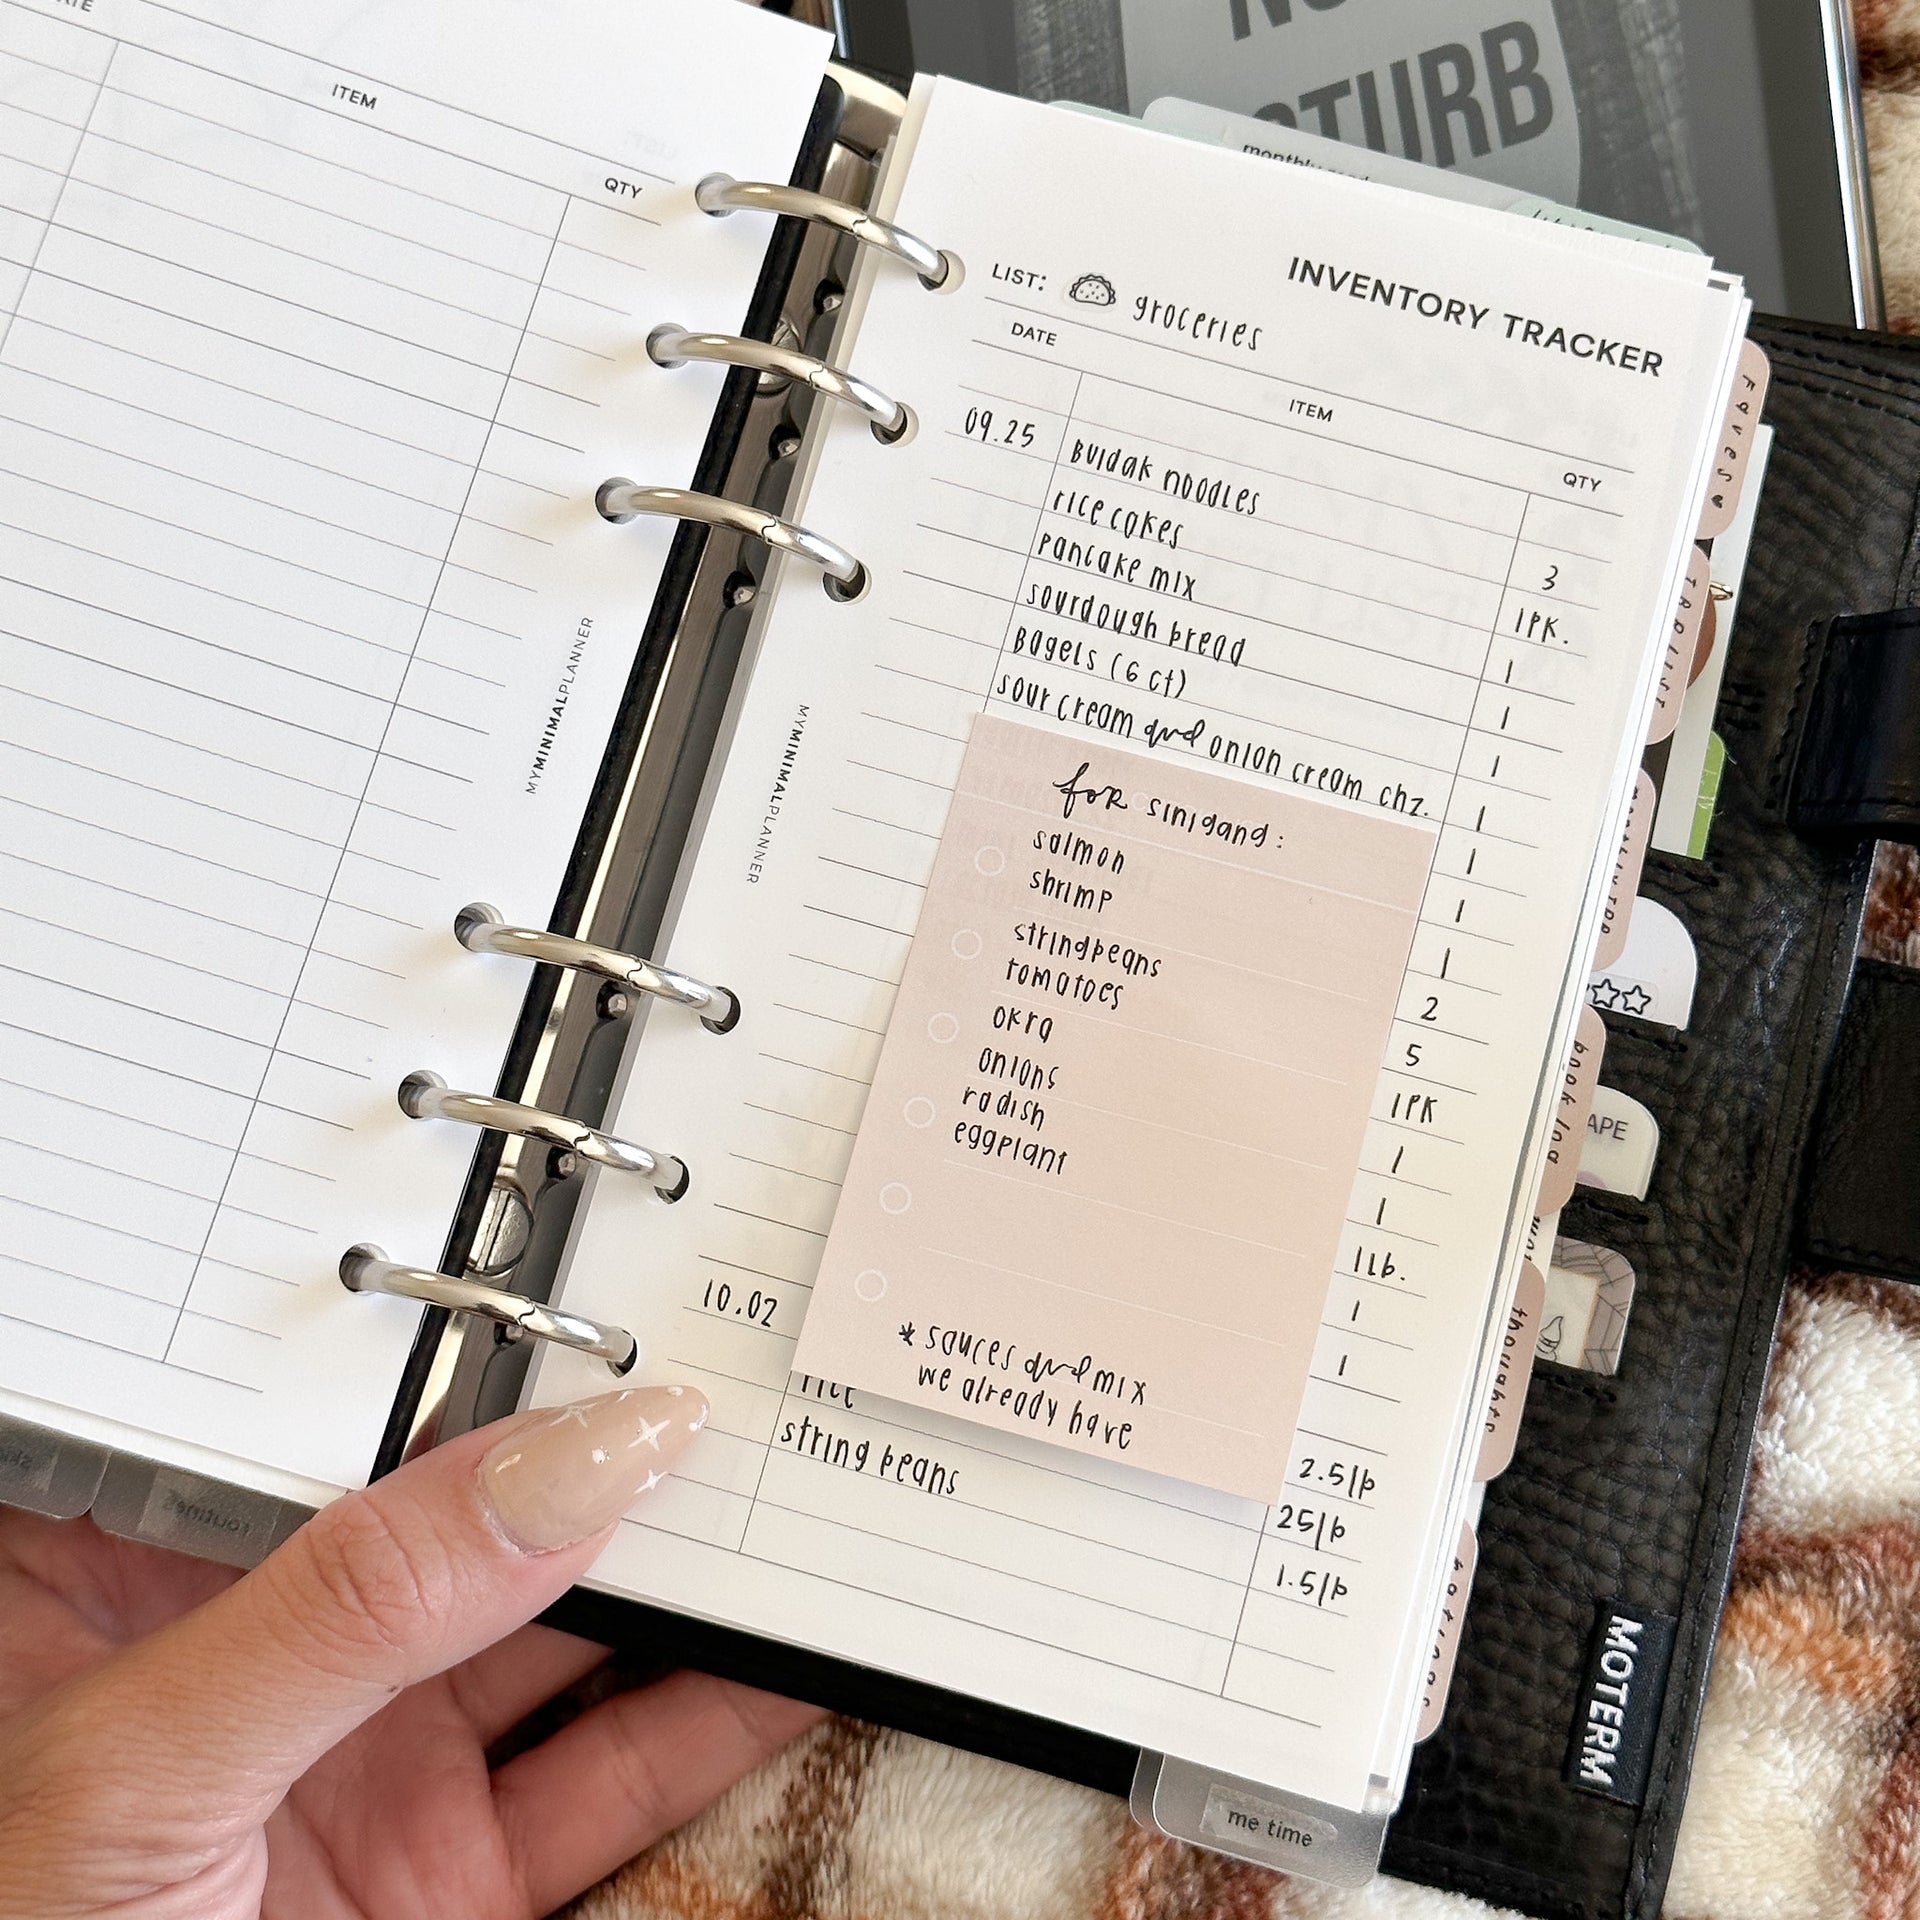 ITEM
QTY
MYMINIMALPLANNER
INVENTORY TRACKER
LIST: groceries
DATE ITEM QTY
09.25 Buldak noodles 3
rice cakes 1PK.
pancake mix 1
sourdough bread 1
Bagels (6 ct) 1
sour cream and onion cream chz. 1
1
1
1
2
5
1PK
1
1
1lb.
1
1
10.02
2.5lb
rice 25lb
string beans 1.5lb
MYMINIMALPLANNER
for sinigang:
salmon
shrimp
stringbeans
tomatoes
okra
onions
radish
eggplant
* sauces and mix
we already have
TURB
monthly
Faves
book log
APE
thoughts
me time
routines
MOTERM